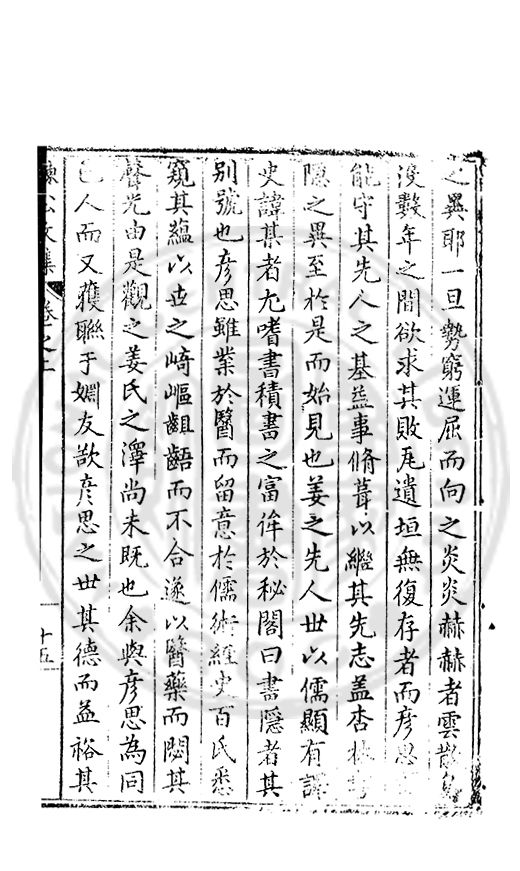 之異耶一旦勢窮運屈而向之炎炎赫赫者雲散
没數年之間欲求其敗瓦遺垣無復存者而彦思
能守其先人之基益事脩葺以繼其先志蓋杏林
隱之異至於是而始見也姜之先人世以儒顯有諱
史諱某者尤嗜書積書之富侔於秘閣曰書隱者其
别號也彦思雖業於醫而留意於儒術經史百氏悉
窺其蘊以世之崎嶇齟齬而不合遂以醫藥而閟其
聲光由是觀之姜氏之澤尚未既也余與彦思為同
邑人而又獲聯于婣友故彦思之世其德而益裕其
陳公文集 卷之二 十五